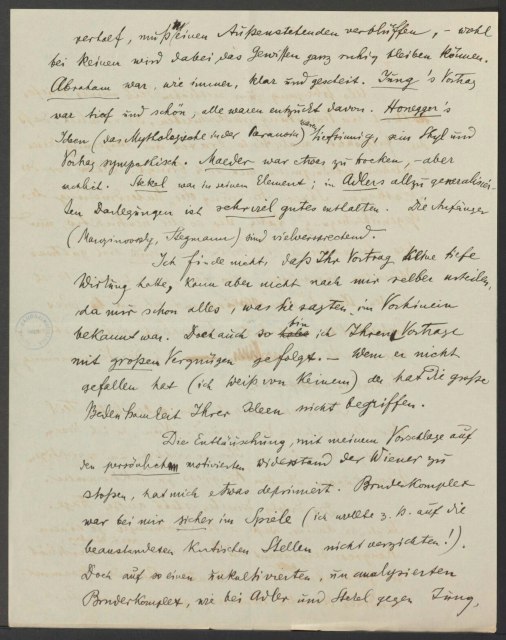 verhalf, muß einen Außenstehenden verblüffen, – wohl
bei keinem wird dabei das Gewissen ganz ruhig bleiben können.
Abraham war, wie immer, klar und gescheit. Jung's Vortrag
war tief und schön, alle waren entzückt davon. Honegger's
Ideen (das Mythologische in der Paranoia) waren tiefsinnig, sein Styl und
Vortrag sympathisch. Maeder war etwas zu trocken, – aber
Stekel war in seinem Element; in Adlers allzu generalisier-
ten Darlegungen ist sehr viel gutes enthalten. Die Anfänger
(Marcinowsky, Stegmann) sind vielversprechend.
Ich finde nicht, daß Ihr Vortrag keine tiefe
Wirkung hatte, kann aber nicht nach mir selber urteilen,
da mir schon alles, was Sie sagten, im Vorhinein
bekannt war. Doch auch so bin ich Ihrem Vortrage
mit großem Vergnügen gefolgt. – Wem er nicht
gefallen hat (ich weiß von keinem) der hat die große
Bedeutsamkeit Ihrer Ideen nicht begriffen.
Die Enttäuschung, mit meinem Vorschlage auf
den persönlichen motivierten Widerstand der Wiener zu
stoßen, hat mich etwas deprimiert. Bruderkomplex
war bei mir sicher im Spiele (ich wollte z. B. auf die
beanstandeten kritischen Stellen nicht verzichten!).
Doch auf so einen unkultivierten, unanalysierten
Bruderkomplex, wie bei Adler und Stekel gegen Jung,